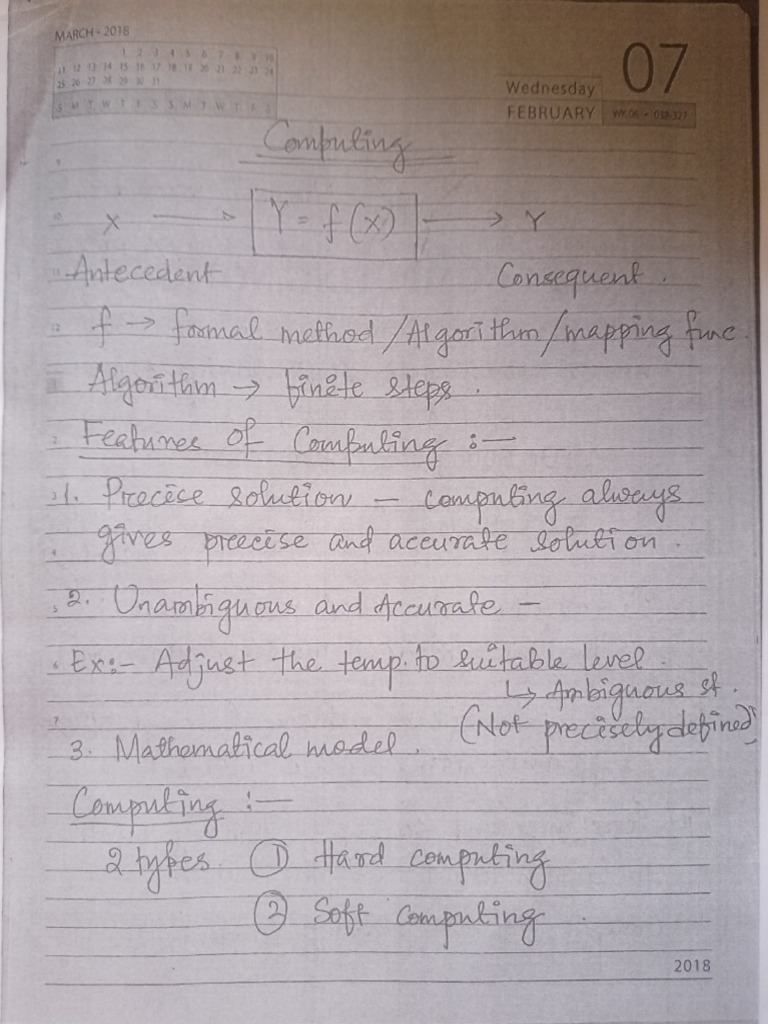 MARCH • 2018
1 2 3 4 5 6 7 8 9 10
11 12 13 14 15 16 17 18 19 20 21 22 23 24
25 26 27 28 29 30 31
S M T W T F S S M T W T F S
07
Wednesday
FEBRUARY WK 06 • 038-327
Computing
X → Y = f(x) → Y
Antecedent Consequent.
f → formal method/Algorithm/mapping func.
Algorithm → finite steps.
Features of Computing :—
1. Precise solution — computing always
gives precise and accurate solution.
2. Unambiguous and Accurate —
Ex:- Adjust the temp. to suitable level.
↳ Ambiguous st.
(Not precisely defined)
3. Mathematical model.
Computing :—
2 types ① Hard computing
② Soft computing.
2018